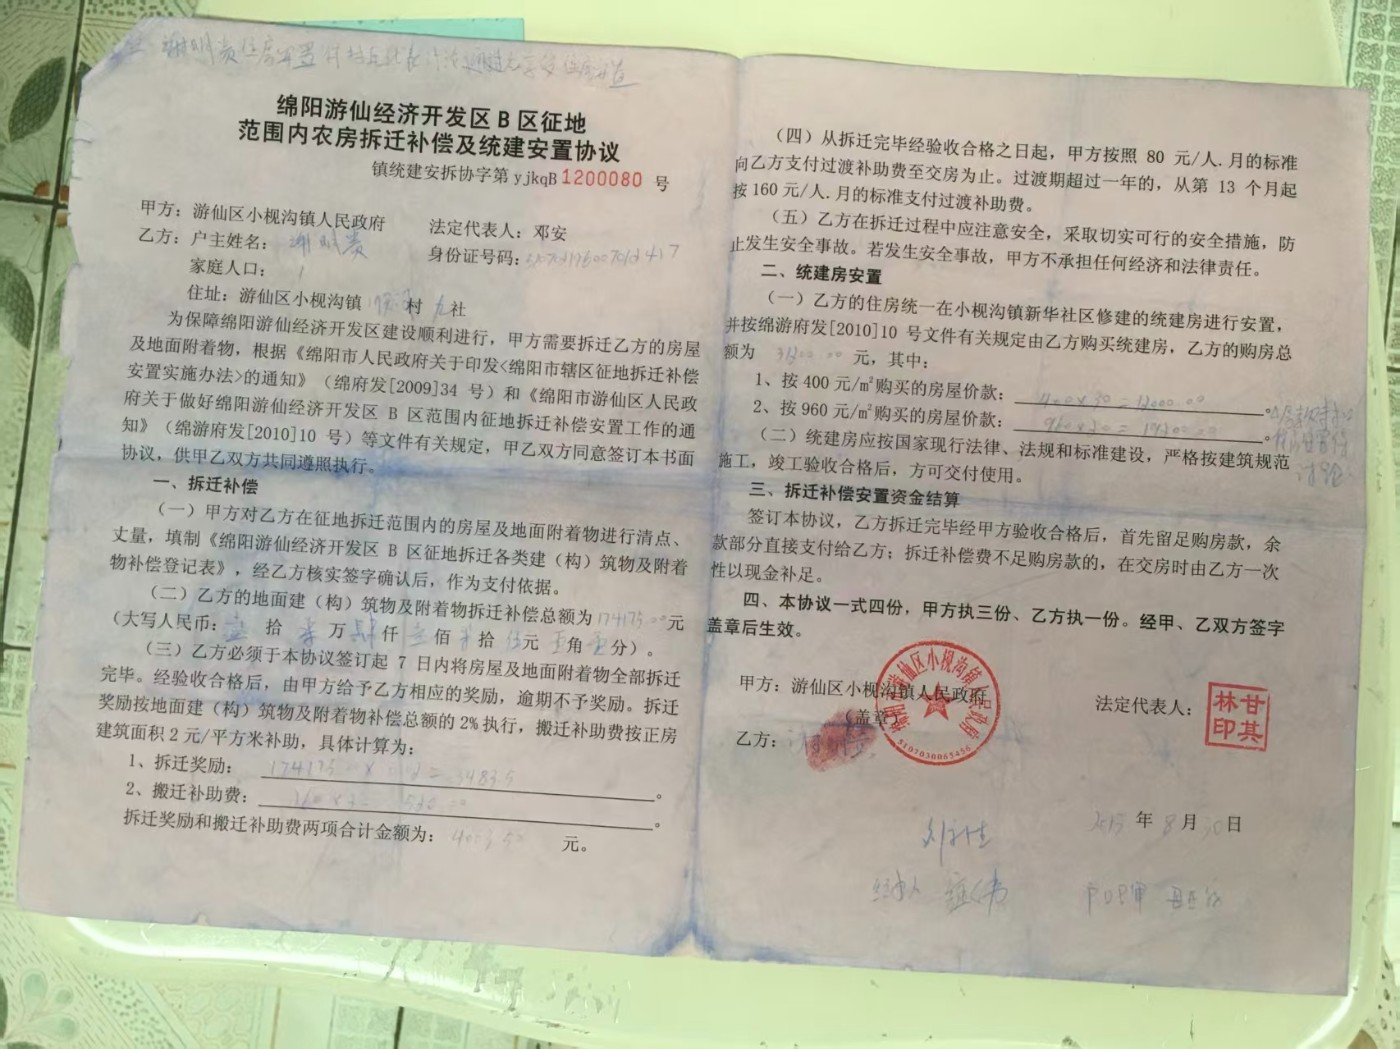 谢明贵住房安置
绵阳游仙经济开发区B区征地
范围内农房拆迁补偿及统建安置协议
镇统建安拆协字第yjkqB1200080 号
甲方：游仙区小枧沟镇人民政府 法定代表人：邓安
乙方：户主姓名：谢明贵 身份证号码：
家庭人口：1
住址：游仙区小枧沟镇 村 九 社
为保障绵阳游仙经济开发区建设顺利进行，甲方需要拆迁乙方的房屋
及地面附着物，根据《绵阳市人民政府关于印发<绵阳市辖区征地拆迁补偿
安置实施办法>的通知》（绵府发[2009]34 号）和《绵阳市游仙区人民政
府关于做好绵阳游仙经济开发区 B 区范围内征地拆迁补偿安置工作的通
知》（绵游府发[2010]10 号）等文件有关规定，甲乙双方同意签订本书面
协议，供甲乙双方共同遵照执行。
一、拆迁补偿
（一）甲方对乙方在征地拆迁范围内的房屋及地面附着物进行清点、
丈量，填制《绵阳游仙经济开发区 B 区征地拆迁各类建（构）筑物及附着
物补偿登记表》，经乙方核实签字确认后，作为支付依据。
（二）乙方的地面建（构）筑物及附着物拆迁补偿总额为174175.00元
（大写人民币：壹 拾 柒 万 肆 仟 壹 佰 柒 拾 伍 元 角 分）。
（三）乙方必须于本协议签订起 7 日内将房屋及地面附着物全部拆迁
完毕。经验收合格后，由甲方给予乙方相应的奖励，逾期不予奖励。拆迁
奖励按地面建（构）筑物及附着物补偿总额的2%执行，搬迁补助费按正房
建筑面积 2 元/平方米补助，具体计算为：
1、拆迁奖励： 。
2、搬迁补助费： 。
拆迁奖励和搬迁补助费两项合计金额为： 元。
（四）从拆迁完毕经验收合格之日起，甲方按照 80 元/人.月的标准
向乙方支付过渡补助费至交房为止。过渡期超过一年的，从第 13 个月起
按160元/人.月的标准支付过渡补助费。
（五）乙方在拆迁过程中应注意安全，采取切实可行的安全措施，防
止发生安全事故。若发生安全事故，甲方不承担任何经济和法律责任。
二、统建房安置
（一）乙方的住房统一在小枧沟镇新华社区修建的统建房进行安置，
并按绵游府发[2010]10 号文件有关规定由乙方购买统建房，乙方的购房总
额为 元，其中：
1、按400元/m²购买的房屋价款：400×30=12000.00。
2、按960元/m²购买的房屋价款：960×20=19200.00。
（二）统建房应按国家现行法律、法规和标准建设，严格按建筑规范
施工，竣工验收合格后，方可交付使用。
三、拆迁补偿安置资金结算
签订本协议，乙方拆迁完毕经甲方验收合格后，首先留足购房款，余
款部分直接支付给乙方；拆迁补偿费不足购房款的，在交房时由乙方一次
性以现金补足。
四、本协议一式四份，甲方执三份、乙方执一份。经甲、乙双方签字
盖章后生效。
甲方：游仙区小枧沟镇人民政府 法定代表人：
（盖章）
游仙区小枧沟镇人民政府
5107030065456
林甘其印
乙方：
年 8 月 30 日
经办人